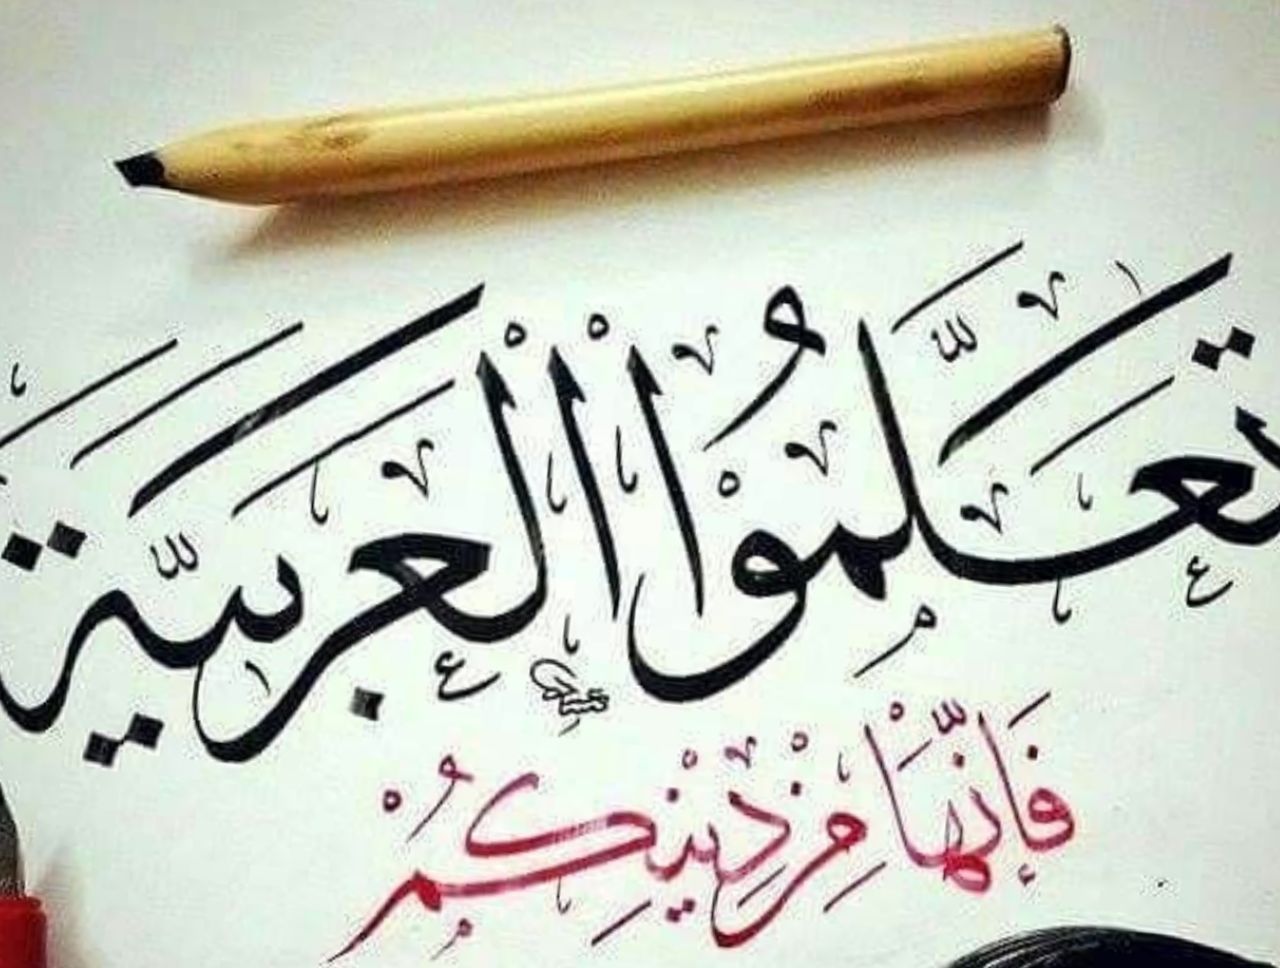 تَعَلَّمُوْا الْعَرَبِيَّةَ
فَإِنَّهَا مِنْ دِيْنِكُمْ